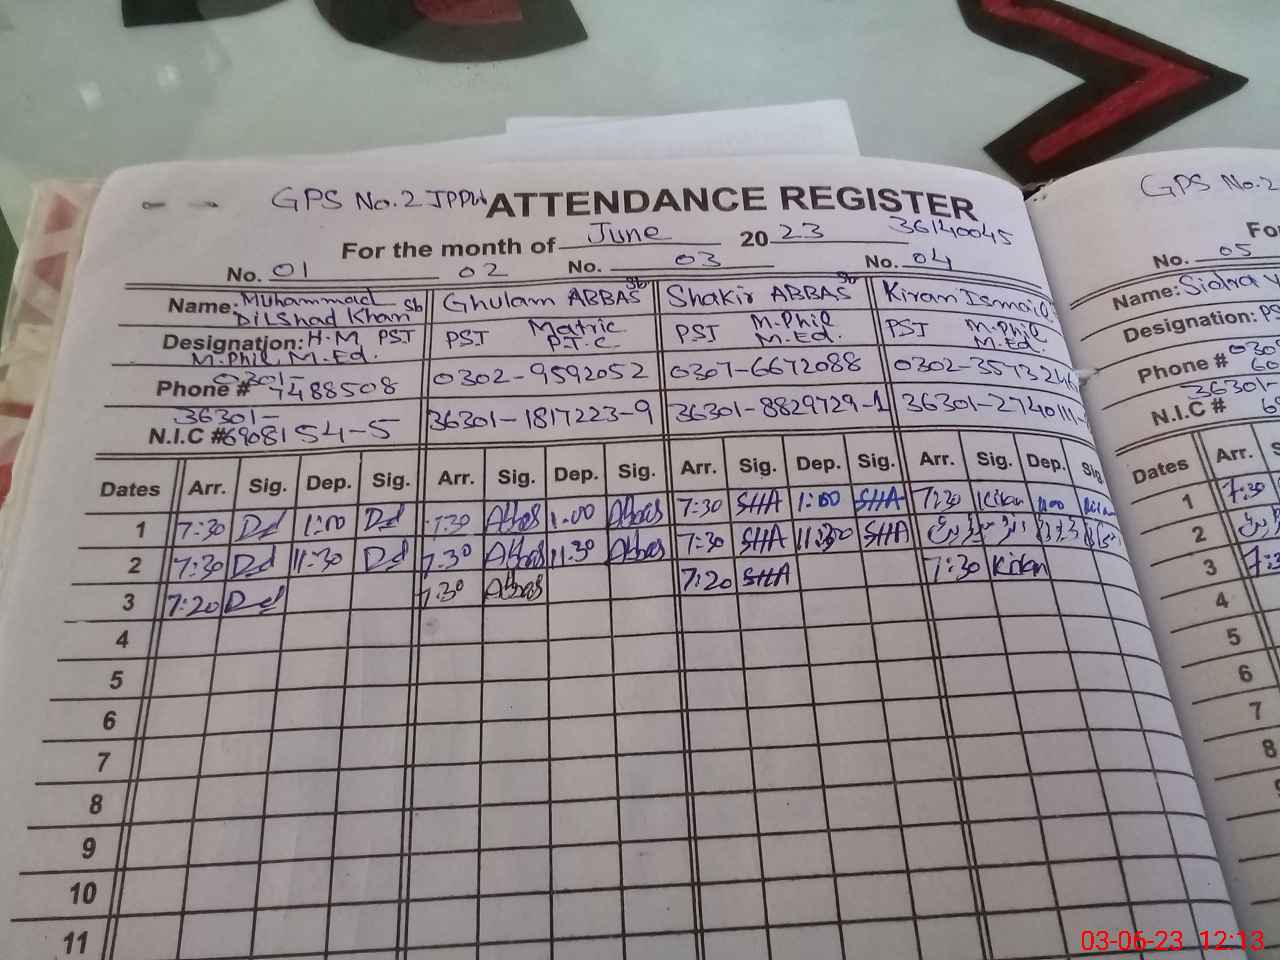 GPS No.2 JPPW ATTENDANCE REGISTER
36140045
For the month of June 2023
No. 01 02 No. 03 No. 04
Name: Muhammad Dilshad Khan Sb Ghulam ABBAS Sb Shakir ABBAS Sb Kiran Ismail
Designation: H.M PST M.Phil M.Ed. PST Matric P.T.C PST M.Phil M.Ed. PST M.Phil M.Ed.
Phone # 0301-7488508 0302-9592052 0307-6672088 0302-3573
N.I.C # 36301-6908154-5 36301-1817223-9 36301-8829729-1 36301-2740111-
Dates Arr. Sig. Dep. Sig. Arr. Sig. Dep. Sig. Arr. Sig. Dep. Sig. Arr. Sig. Dep. Sig
1 7:30 Dd 1:00 Dd 7:30 Abbas 1:00 Abbas 7:30 SHA 1:00 SHA 7:30 Kiran 1:00 Kiran
2 7:30 Dd 11:30 Dd 7:30 Abbas 11:30 Abbas 7:30 SHA 11:30 SHA
3 7:20 Dd 7:30 Abbas 7:20 SHA 7:30 Kiran
4
5
6
7
8
9
10
11
GPS No.2
Fo
No. 05
Name: Sidra
Designation: PS
Phone #
N.I.C # 36301-
Dates Arr.
1 7:30
2
3 7:3
4
5
6
7
8
03-06-23 12:13